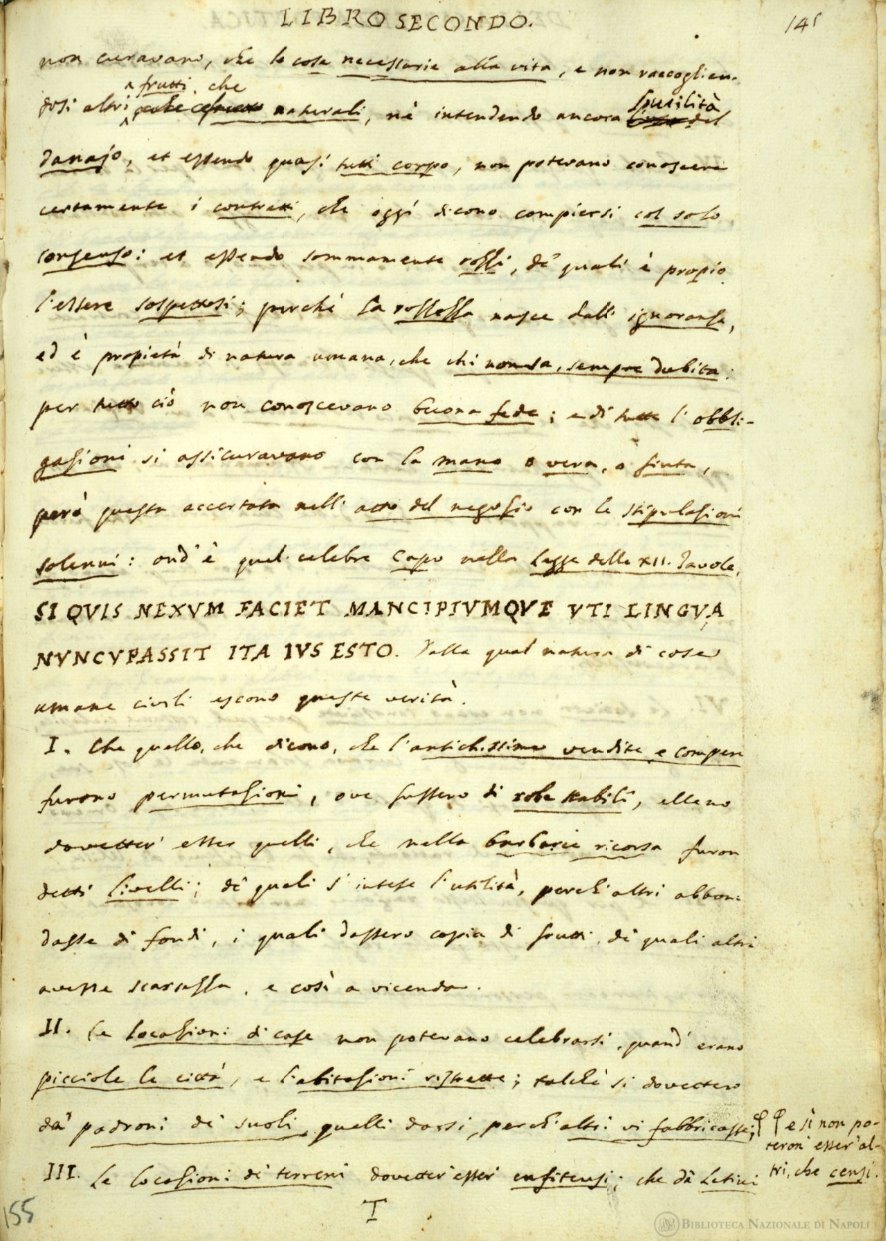 LIBRO SECONDO.
145
non curavano, che le cose necessarie alla vita, e non raccoglien-
dosi altri frutti, che naturali, nè intendendo ancora l'utilità del
danajo, et essendo quasi tutti corpo, non potevano conoscere
certamente i contratti, che oggi dicono compiersi col solo
consenso: et essendo sommamente rozzi, de' quali è propio
l'essere sospettosi; perchè la rozzezza nasce dall' ignoranza,
ed è propietà di natura umana, che chi non sa, sempre dubita:
per tutto ciò non conoscevano buona fede; e di tutte l' obbli-
gazioni si assicuravano con la mano o vera, o finta,
però questa accertata nell' atto del negozio con le stipulazioni
solenni: ond' è quel celebre Capo nella Legge delle XII. Tavole,
SI QUIS NEXUM FACIET MANCIPIUMQUE UTI LINGUA
NUNCUPASSIT ITA IUS ESTO. Dalla qual natura di cose
umane civili escono queste verità.
I. Che quello, che dicono, che l'antichissime vendite e compere
furono permutazioni, ove fussero di robe stabili, elleno
dovetter' esser quelli, che nella barbarie ricorsa furon
detti livelli; de' quali s' intese l'utilità, perch' altri abbon-
dasse di fondi, i quali dassero copia di frutti, de' quali altri
avesse scarsezza, e così a vicenda.
II. Le locazioni di case non potevano celebrarsi, quand' erano
picciole le città, e l'abitazioni ristrette; talchè si dovettero
da' padroni de' suoli quelli darsi, perch' altri vi fabbricasse;
e sì non po-
teron' esser' al-
tri, che censi.
III. Le locazioni de' terreni dovetter' esser' enfiteusi; che da' Latini
T
155
BIBLIOTECA NAZIONALE DI NAPOLI